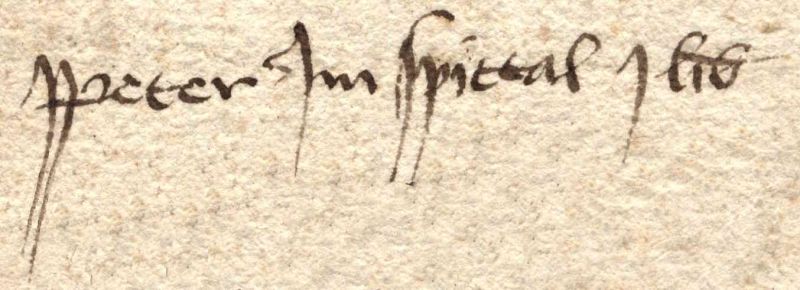 Peter Im Spittal j lib